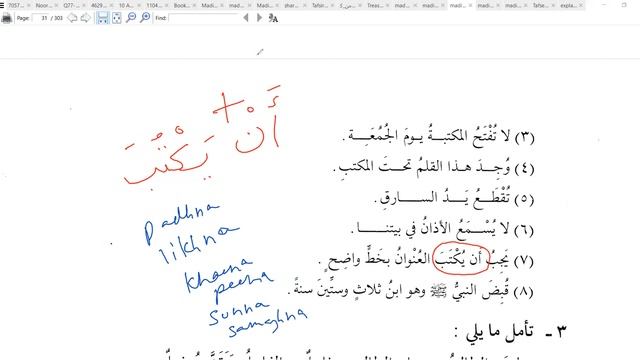 7057 Noor Q77- 4629 10 A 1104 Book Madi mad Madi shar Tafsir Treas mad madi madi madi Tafse expla
Page: 31 / 303
أَنْ + يَكْتُبَ
(٣) لا تُفْتَحُ المكتبـةُ يـومَ الجُمُعَـةِ .
(٤) وُجِدَ هـذا القلمُ تحـتَ المكتبِ.
(٥) تُقْطَـعُ يَـدُ السـارقِ.
(٦) لا يُسْـمَعُ الأذانُ في بيتنـا .
(٧) يَجِبُ أن يُكْتَبَ العُنْوانُ بخَطٍّ واضِحٍ .
(٨) قُبِضَ النبيُّ ﷺ وهو ابنُ ثلاثٍ وستِّينَ سنةً .
padhna
likhna
khana
peena
sunna
samajhna
٣ ـ تأمل ما يلي :